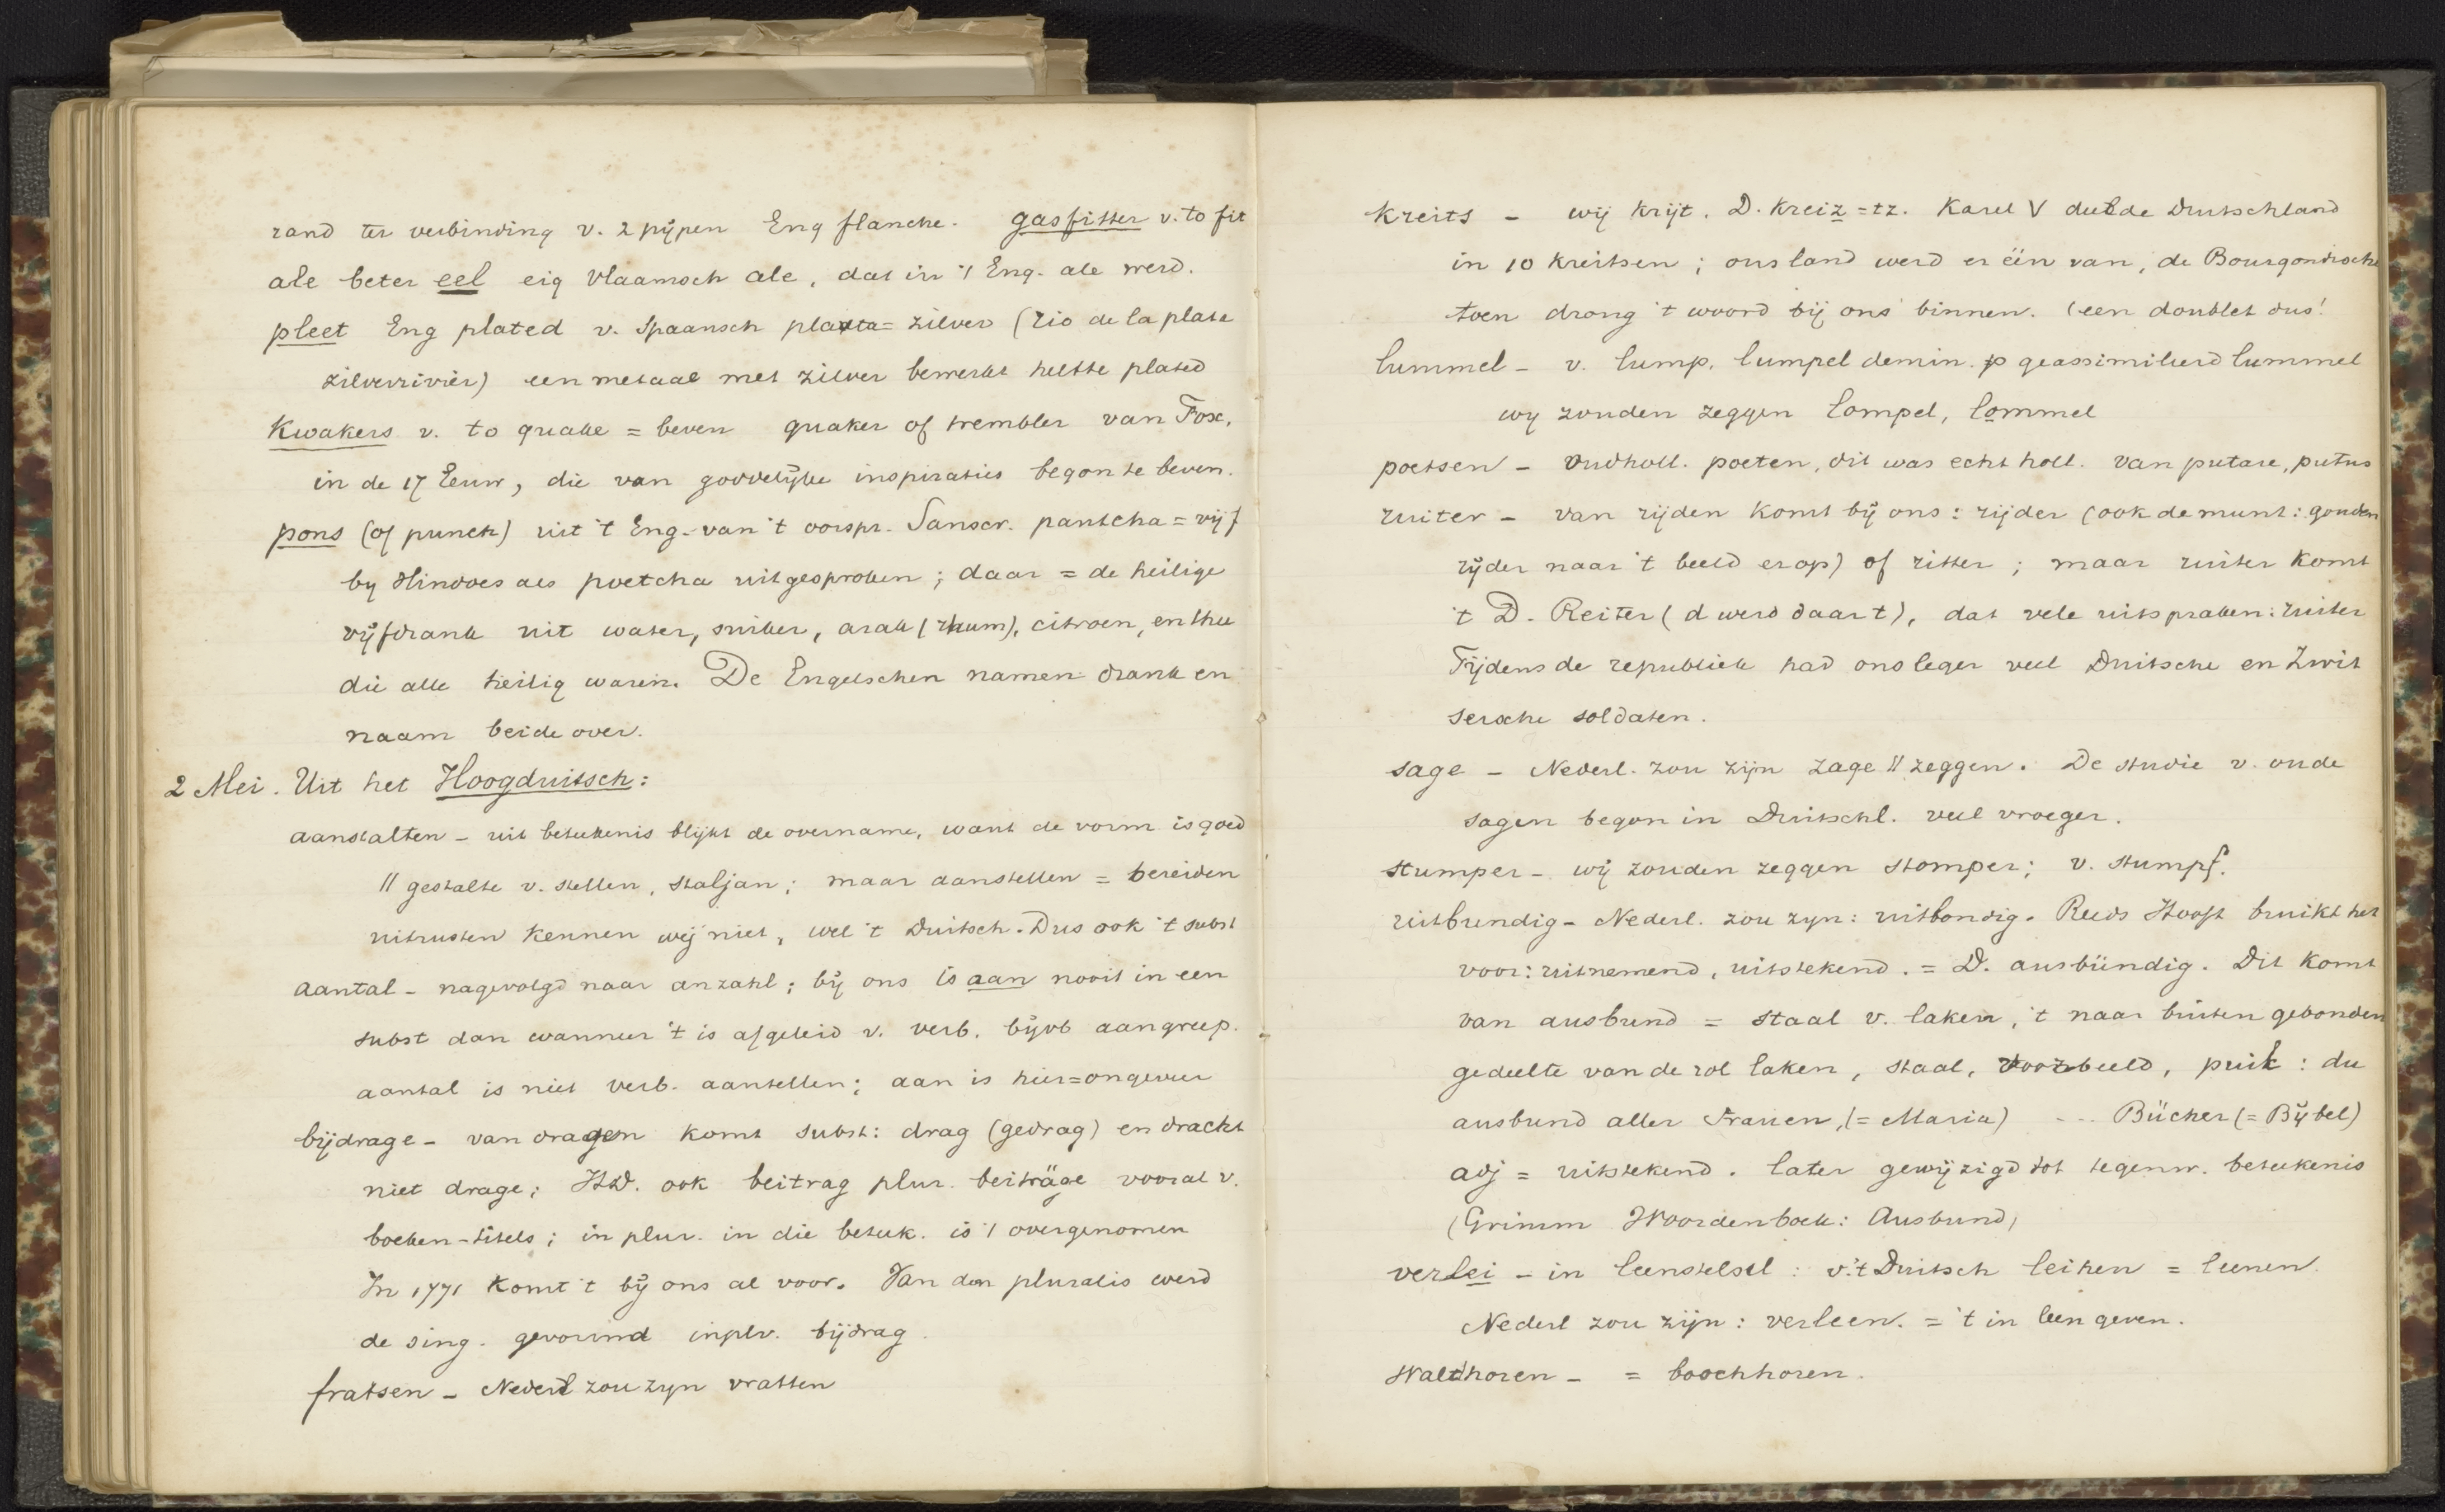 rand ter verbinding v. 2 pijpen Eng flanche. gasfitter v. to fit
ale beter eel eig Vlaamsch ale, dat in 't Eng. ale werd.
pleet Eng plated v. Spaansch plata = zilver (Rio de la plata
zilverrivier) een metaal met zilver bewerkt heette plated
Kwakers v. to quake = beven quaker of trembler van Fox,
in de 17 Eeuw, die van goddelijke inspiraties begon te beven.
pons (of punch) uit 't Eng. van 't oorspr. Sanscr. pantcha = vijf
by Hindoes als poetcha uitgesproken; daar = de heilige
vijfdrank uit water, suiker, arak (rhum), citroen, en thee
die alle heilig waren. De Engelschen namen drank en
naam beide over.
2 Mei. Uit het Hoogduitsch:
aanstalten - uit beteekenis blijkt de overname, want de vorm is goed
// gestalte v. stellen, staljan; maar aanstellen = bereiden
uitrusten kennen wij niet, wel 't Duitsch. Dus ook 't subst
aantal - nagevolgd naar anzahl; bij ons is aan nooit in een
subst dan wanneer 't is afgeleid v. verb. bijvb aangreep.
aantal is niet verb. aantellen; aan is hier = ongeveer
bijdrage - van dragen komt subst: drag (gedrag) en dracht
niet drage; HD. ook beitrag plur. beiträge vooral v.
boeken-titels; in plur. in die beteek. is 't overgenomen
In 1771 komt 't bij ons al voor. Van den pluralis werd
de sing. gevormd inplv. bijdrag.
fratsen - Nederl zou zyn vratten
Kreits - wij krijt. D. Kreiz = tz. Karel V deelde Duitschland
in 10 kreitsen; ons land werd er één van, de Bourgondische
toen drong 't woord bij ons binnen. (een doublet dus!
lummel - v. lump. lumpel demin. p geassimileerd lummel
wy zouden zeggen lompel, lommel
poetsen - Oudholl. poeten, dit was echt holl. van putare, putus
ruiter - van rijden komt bij ons: rijder (ook de munt: gouden
rijder naar 't beeld erop) of ritter; maar ruiter komt
't D. Reiter (d werd daar t), dat vele uitspraken: ruiter
Tijdens de republiek had ons leger veel Duitsche en Zwit
sersche soldaten.
sage - Nederl. zou zijn zage // zeggen. De studie v. oude
sagen begon in Duitschl. veel vroeger.
stumper - wij zouden zeggen stomper; v. stumpf.
uitbundig - Nederl. zou zyn: uitbondig. Reeds Hooft bruikt het
voor: uitnemend, uitstekend. = D. ausbündig. Dit komt
van ausbund = staal v. laken, 't naar buiten gebonden
gedeelte van de rol laken, staal, voorbeeld, puik: die
ausbund aller Frauen, (= Maria) --- Bücher (= Bijbel)
adj = uitstekend. later gewijzigd tot tegenw. beteekenis
(Grimm Woordenboek: Ausbund)
verlei - in leenstelsel: v. 't Duitsch leihen = leenen.
Nederl zou zijn: verleen. = 't in leen geven.
Waldhoren - = boschhoren.